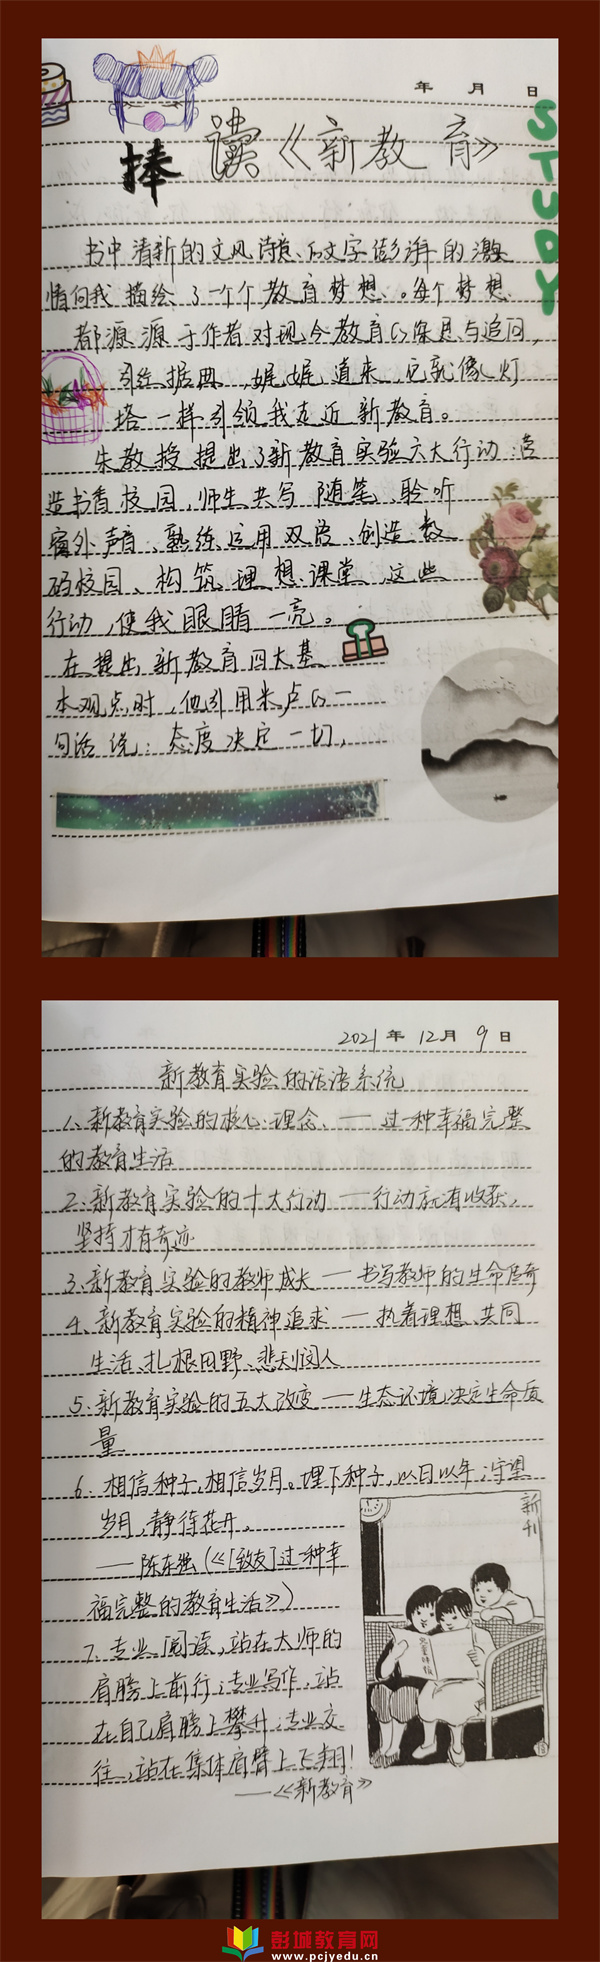 年 月 日
STUDY
捧读《新教育》
书中清新的文风诗意、文字澎湃的激
情向我描绘了一个个教育梦想、。每个梦想
都源源于作者对现今教育的深思与追问,
引经据典,娓娓道来,它就像灯
塔一样引领我走近新教育。
朱教授提出了新教育实验六大行动:营
造书香校园,师生共写随笔、聆听
窗外声音、熟练运用双语、创造数
码校园、构筑理想课堂,这些
行动,使我眼睛一亮。
在提出新教育四大基
本观点时,他引用米卢的一
句话说:态度决定一切,
2021年12月9日
新教育实验的话语系统
1、新教育实验的核心理念、——过一种幸福完整
的教育生活
2、新教育实验的十大行动——行动就有收获,
坚持才有奇迹
3、新教育实验的教师成长——书写教师的生命传奇
4、新教育实验的精神追求——执着理想、共同
生活、扎根田野、悲天悯人
5、新教育实验的五大改变——生态环境决定生命质
量
6、相信种子,相信岁月。埋下种子,以日以年;守望
岁月,静待花开。
——陈东强(《[致友]过一种幸
福完整的教育生活》)
7、专业阅读,站在大师的
肩膀上前行;专业写作,站
在自己肩膀上攀升;专业交
往,站在集体肩臂上飞翔!
——《新教育》
新刊
儿童时报
彭城教育网
www.pcjyedu.cn